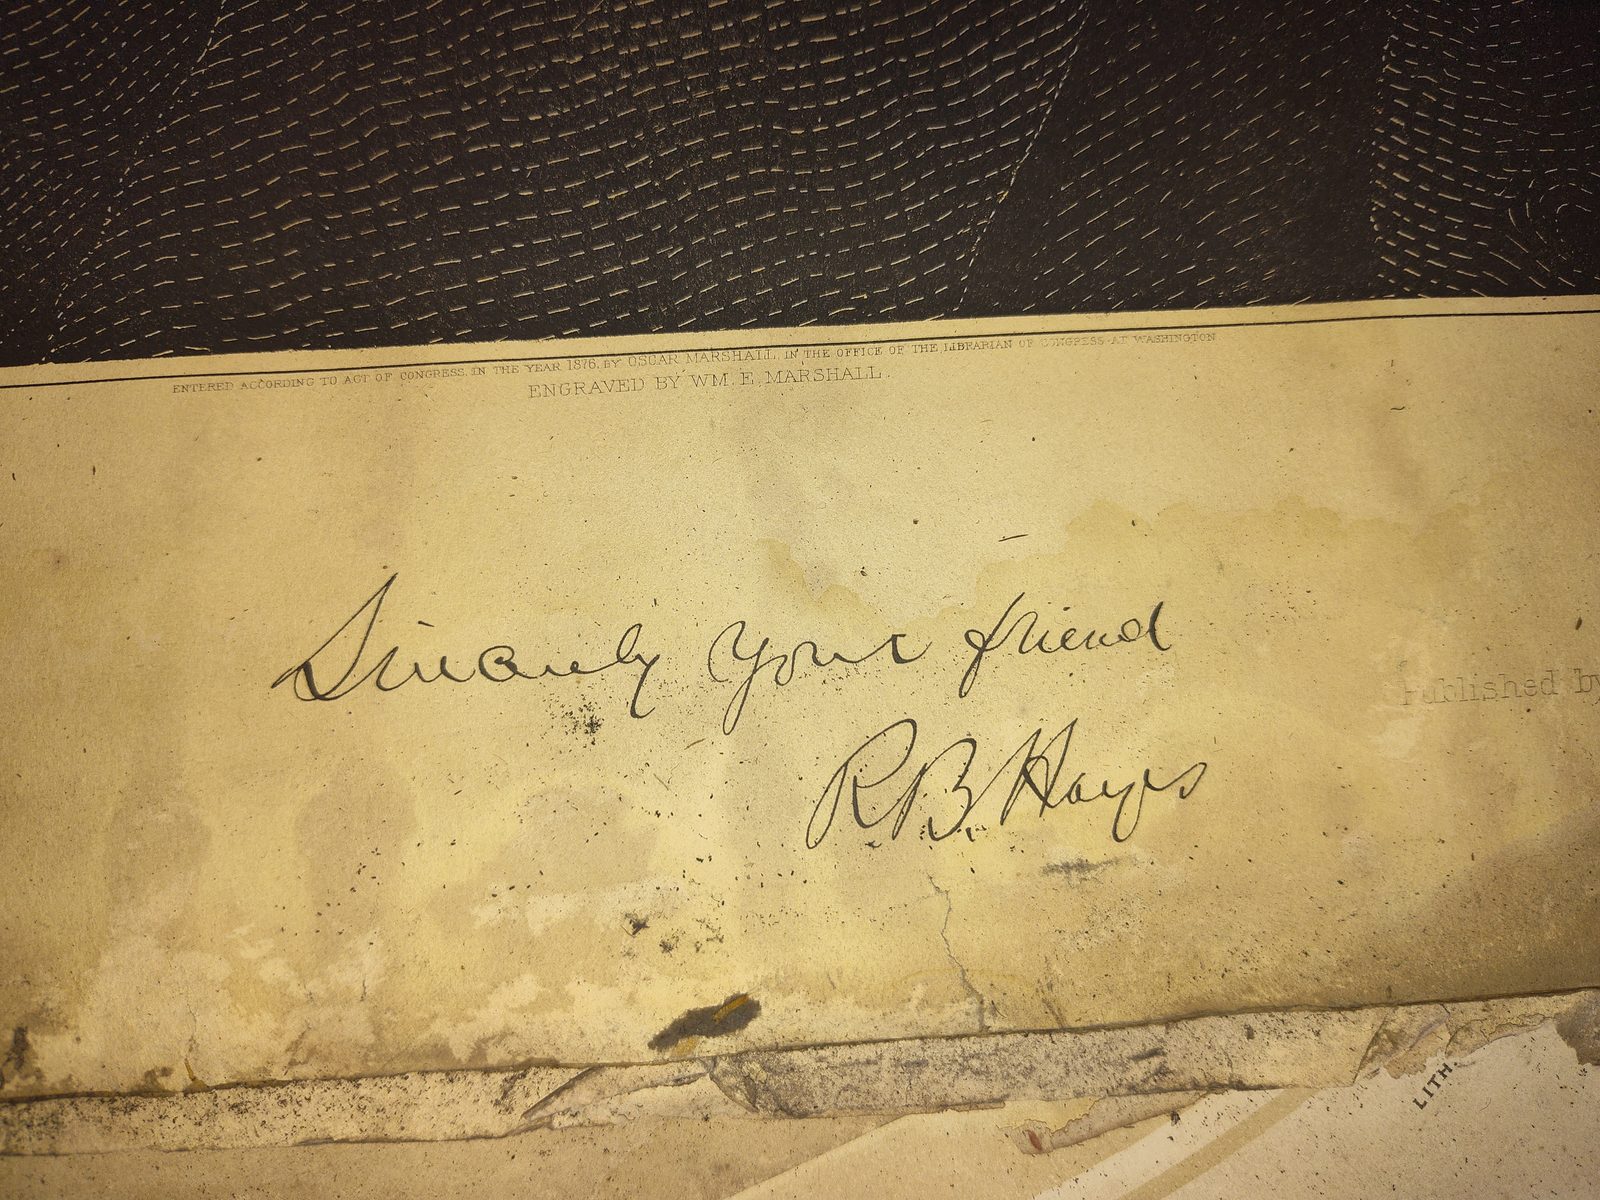 ENTERED ACCORDING TO ACT OF CONGRESS, IN THE YEAR 1876, BY OSCAR MARSHALL, IN THE OFFICE OF THE LIBRARIAN OF CONGRESS AT WASHINGTON
ENGRAVED BY WM. E. MARSHALL.
Sincerely Your friend
Published by
R.B. Hayes
LITH.